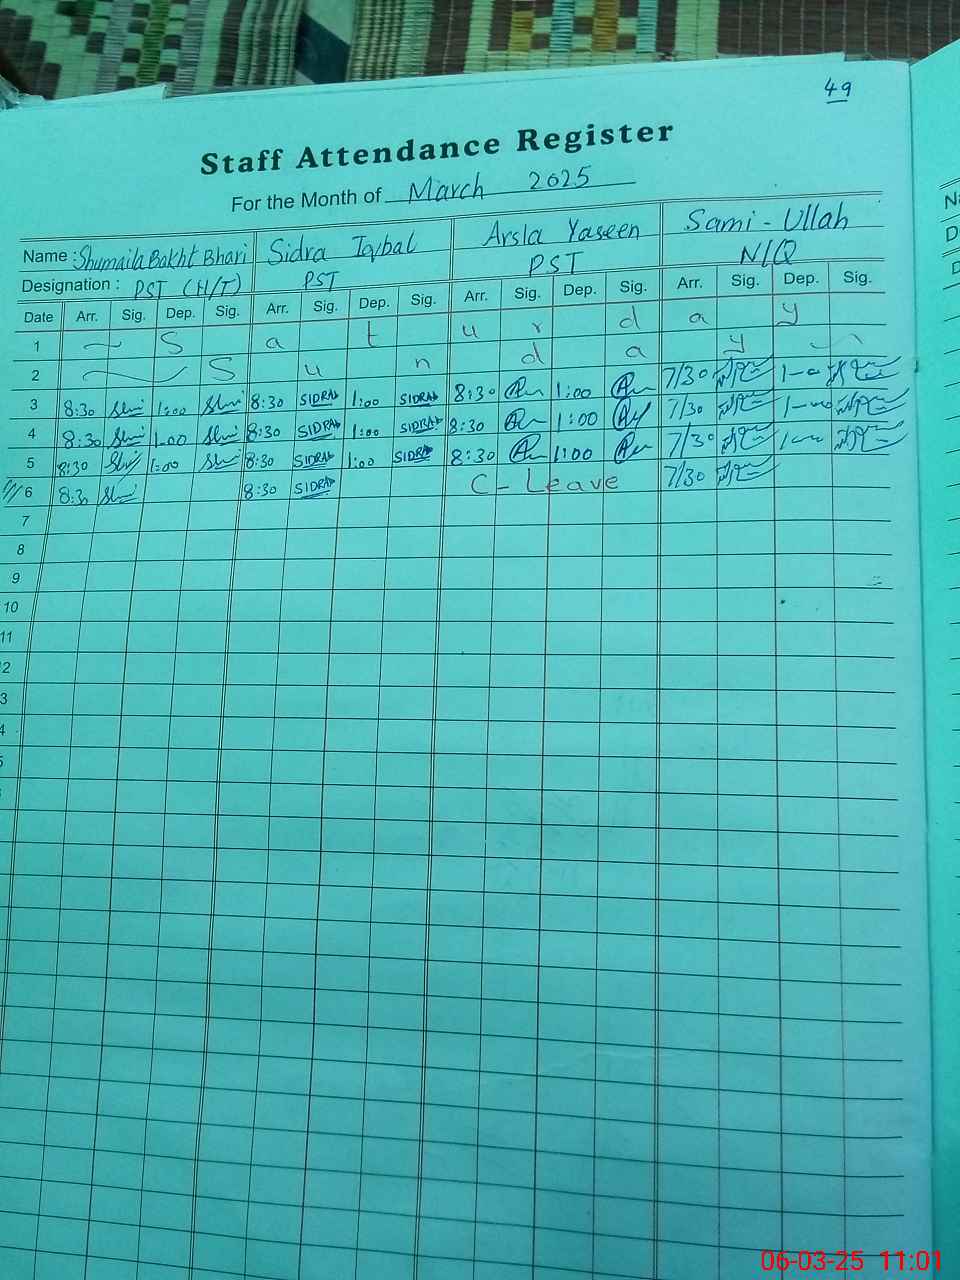 49
Staff Attendance Register
For the Month of March 2025
Name : Shumaila Bakht Bhari Sidra Iqbal Arsla Yaseen Sami-Ullah
Designation : PST (H/T) PST PST N/Q
Date Arr. Sig. Dep. Sig. Arr. Sig. Dep. Sig. Arr. Sig. Dep. Sig. Arr. Sig. Dep. Sig.
1 S a t u r d a y
2 S u n d a y
3 8:30 1:00 8:30 SIDRA 1:00 SIDRA 8:30 1:00 7/30
4 8:30 1:00 8:30 SIDRA 1:00 SIDRA 8:30 1:00 7/30
5 8:30 1:00 8:30 SIDRA 1:00 SIDRA 8:30 1:00 7/30
6 8:30 8:30 SIDRA C-Leave 7/30
7
8
9
10
11
2
3
4
5
06-03-25 11:01